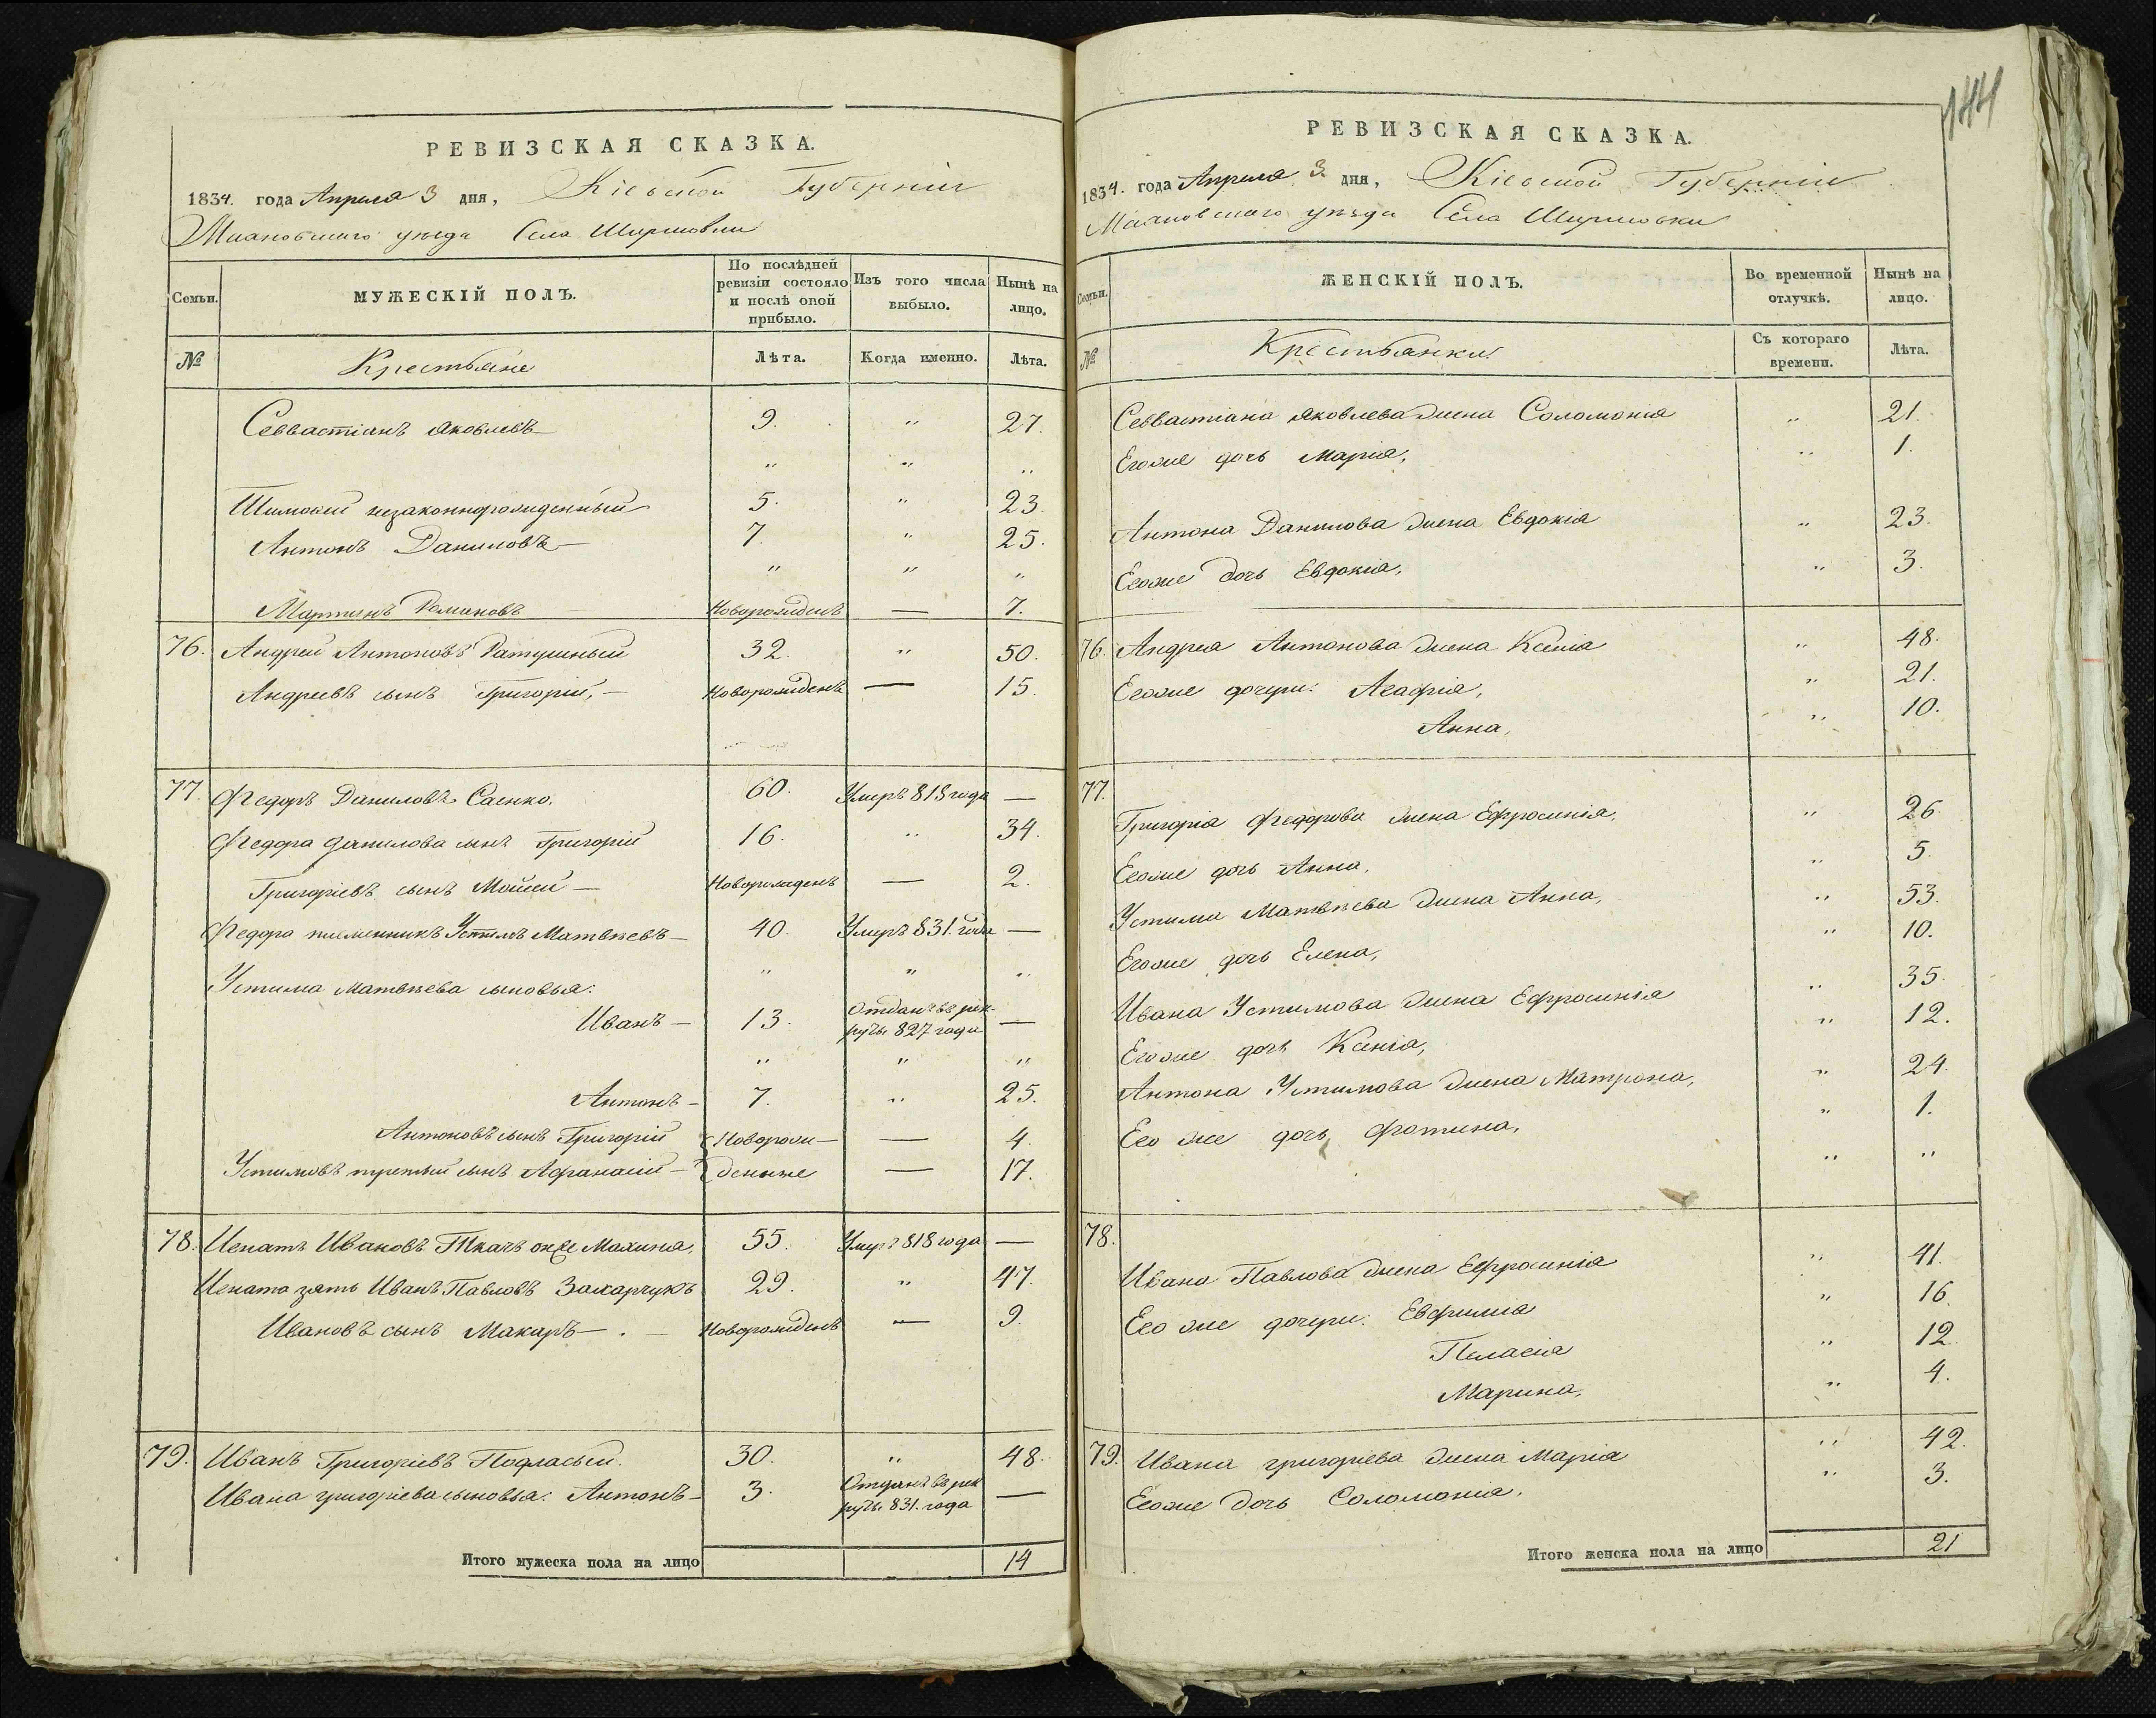 РЕВИЗСКАЯ СКАЗКА.
1834. года Апреля 3 дня, Кіевской Губерніи
уезда Села
Семьи. МУЖЕСКІЙ ПОЛЪ. По послѣдней ревизіи состояло и послѣ оной прибыло. Изъ того числа выбыло. Нынѣ на лицо.
№ Крестьяне Лѣта. Когда именно. Лѣта.
Севвастіанъ Яковлевъ — 9. " 27.
" " "
незаконнорожденный 5. " 23.
Антонъ Даниловъ — 7. " 25.
" " "
Мартинъ Романовъ Новорожденъ — 7.
76. Андрей Антоновъ Ратушный 32. " 50.
Андреевъ сынъ Григорій, — Новорожденъ — 15.
77. Федоръ Даниловъ Саенко. 60. Умеръ 818 года —
Федора Данилова сынъ Григорій 16. " 34.
Григоріевъ сынъ Мойсей — Новорожденъ — 2.
Федора племенникъ Устимъ Матвѣевъ — 40. Умеръ 831. года —
Устима Матвѣева сыновья: " " "
Иванъ — 13. Отданъ въ рек-
руты 827 года —
" " "
Антонъ — 7. " 25.
Антоновъ сынъ Григорій Новорож— — 4.
Устимовъ третий сынъ Афанасій — денные — 17.
78. Игнатъ Ивановъ Ткачъ онже Махина, 55. Умеръ 818 года —
Игната зять Иванъ Павловъ Захарчукъ 29. " 47.
Ивановъ сынъ Макаръ — . — Новорожденъ — 9.
79. Иванъ Григоріевъ 30. " 48.
Ивана Григоріева сыновья: Антонъ — 3. Отданъ въ рек
руты 831. года —
Итого мужеска пола на лицо 14
144
РЕВИЗСКАЯ СКАЗКА.
1834. года Апреля 3 дня, Кіевской Губерніи
уезда Села
Семьи. ЖЕНСКІЙ ПОЛЪ. Во временной отлучкѣ. Нынѣ на лицо.
№ Крестьянки Съ котораго времени. Лѣта.
Севвастиана Яковлева жена Соломонія " 21.
Егоже дочь Марія, " 1.
Антона Данилова жена Евдокія " 23.
Егоже дочь Евдокія, " 3.
76. Андрея Антонова жена Ксенія " 48.
Егоже дочери: Агафія, " 21.
Анна, " 10.
77.
Григорія Федорова жена Ефросинія, " 26.
Егоже дочь Анна, " 5.
Устима Матвѣева жена Анна, " 53.
Егоже дочь Елена, " 10.
Ивана Устимова жена Ефросинія " 35.
Егоже дочь Ксенія, " 12.
Антона Устимова жена Матрона, " 24.
Его же дочь Фотина, " 1.
" "
78.
Ивана Павлова жена Ефросинія " 41.
Его же дочери: Евфимія " 16.
Пелагія " 12
Марина, " 4.
79. Ивана Григоріева жена Марія " 42.
Егоже дочь Соломонія, " 3.
Итого женска пола на лицо 21